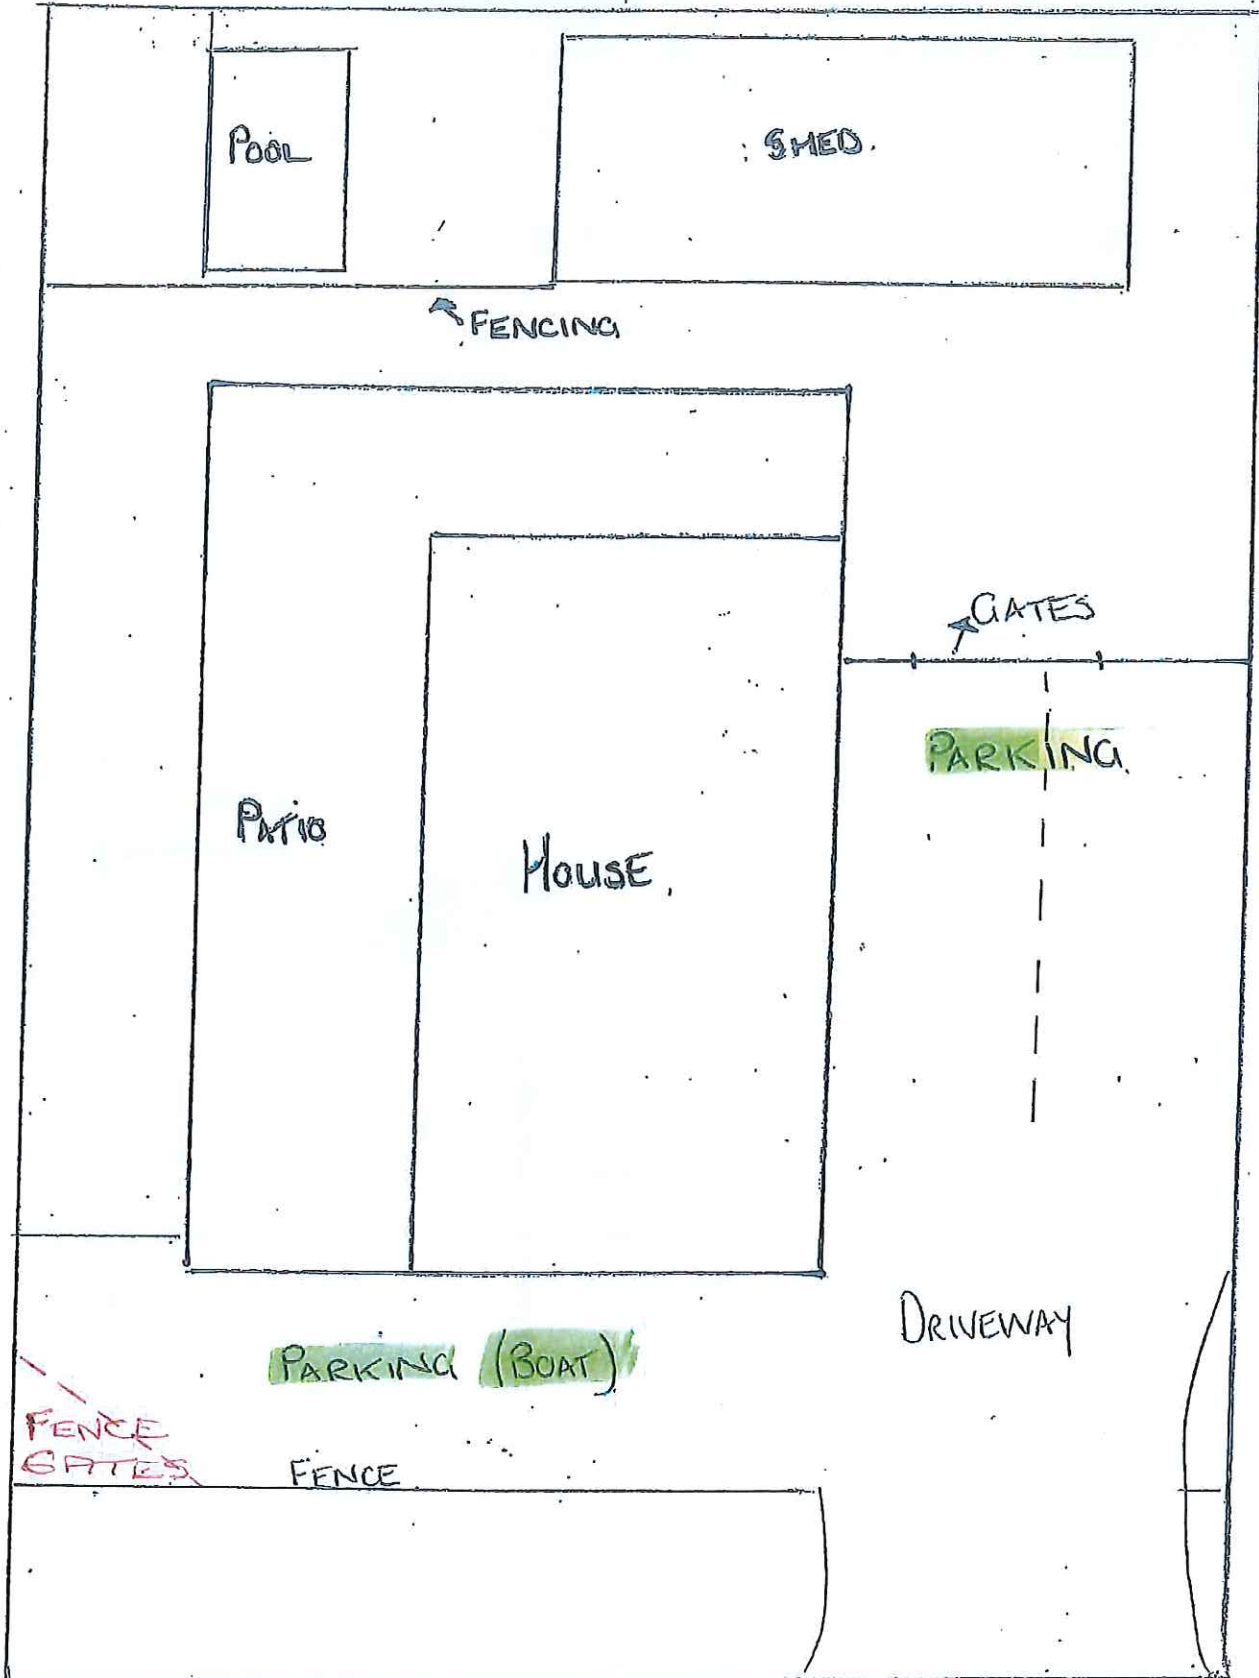 POOL
SHED.
FENCING
GATES
PARKING.
PATIO
HOUSE.
DRIVEWAY
PARKING (BOAT)
FENCE
GATES
FENCE